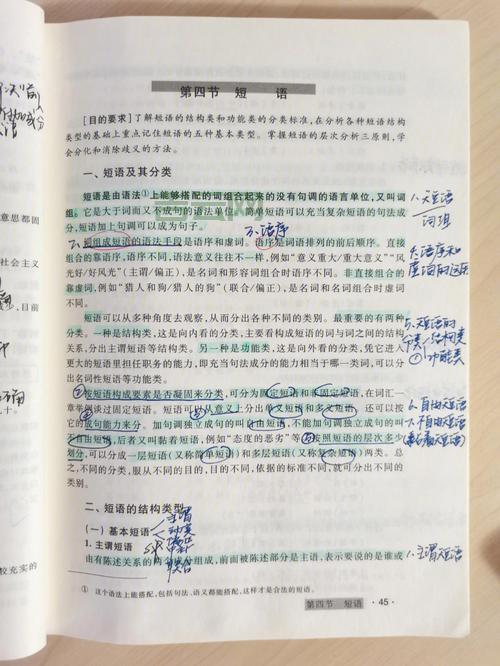 第四节 短 语
[目的要求]了解短语的结构类和功能类的分类标准，在分析各种短语结构
类型的基础上重点记住短语的五种基本类型。掌握短语的层次分析三原则，学
会分化和消除歧义的方法。
一、短语及其分类
短语是由语法①上能够搭配的词组合起来的没有句调的语言单位，又叫词
组。它是大于词而又不成句的语法单位。简单短语可以充当复杂短语的句法成
分，短语加上句调可以成为句子。
3.语序
组成短语的语法手段是语序和虚词。语序是词语排列的前后顺序。直接
组合的靠语序，语序不同，语法意义往往不一样，例如“意义重大/重大意义”“风
光好/好风光”(主谓/偏正)，是名词和形容词组合时语序不同。非直接组合的
靠虚词，例如“猎人和狗/猎人的狗”(联合/偏正)，是名词和名词组合时虚词
不同。
短语可以从多种角度去观察，从而分出各种不同的类别。最重要的有两种
分类。一种是结构类，这是向内看的分类，主要看构成短语的词与词之间的结构
关系，分出主谓短语等结构类。另一种是功能类，这是向外看的分类，凭它进入
更大的短语里担任职务的能力，即充当句法成分的能力相当于哪一类词，可以分
出名词性短语等功能类。
按短语构成要素是否凝固来分类，可分为固定短语和非固定短语，在词汇一
章举谈过固定短语。短语可以从意义上分出单义短语和多义短语。还可以按
它的成句能力来分。加句调独立成句的叫自由短语，不能加句调独立成句的叫
不自由短语，后者又叫黏着短语，例如“态度的恶劣”等。按照短语的层次多少
划分，可以分成一层短语(又称简单短语)和多层短语(又称复杂短语)两类。总
之，不同的分类，服从不同的目的，目的不同，依据的标准不同，就可分出不同的
类别。
二、短语的结构类型
(一)基本短语
主谓
1.主谓短语
由有陈述关系的两个成分组成，前面被陈述部分是主语，表示要说的是谁或
联合
① 这个语法上能搭配，包括句法、语义都能搭配，这样才是合法的短语。
第四节 短语 ·45·
1.短语
词组
2.语序和
虚词的运用
5.短语的
分类：结构类
功能类
6.自由短语
7.不自由短语
1.主谓短语
意思都固
社会主义
，目前
十。
校充实的